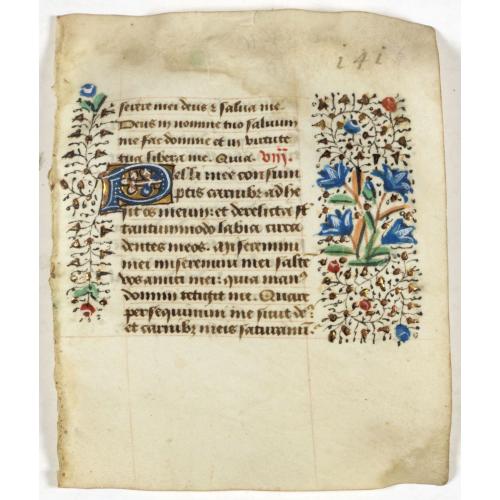 1416
serere mei deus & salua me
Deus in nomine tuo saluum
me fac domine et in virtute
tua libera me. Quia. viij.
Pelli mee consum
ptis carnibz adhe
sit os meum: et derelicta st
tantummodo labia circa
dentes meos. Miseremini
mei miseremini mei saltē
vos amici mei: quia manꝰ
domini tetigit me. Quare
persequimini me sicut deꝰ
et carnibz meis saturamī